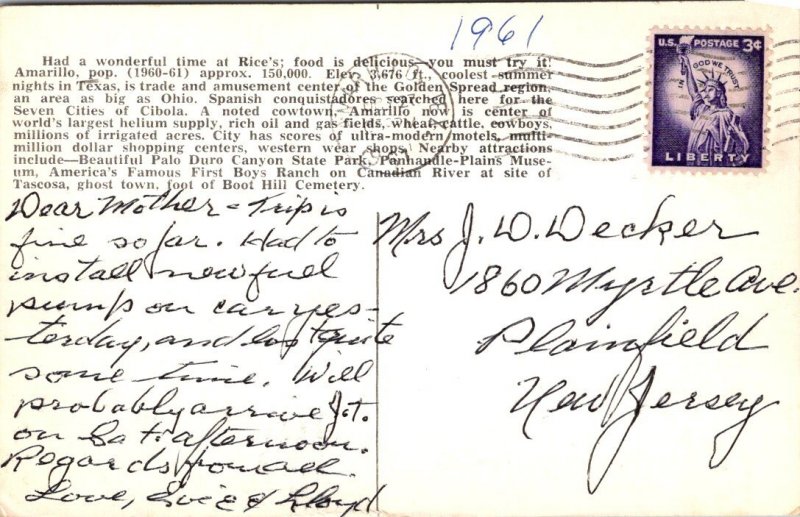 1961
U.S. POSTAGE 3¢
IN GOD WE TRUST
LIBERTY
Had a wonderful time at Rice's; food is delicious—you must try it!
Amarillo, pop. (1960-61) approx. 150,000. Elev. 3,676 ft., coolest summer
nights in Texas, is trade and amusement center of the Golden Spread region,
an area as big as Ohio. Spanish conquistadores searched here for the
Seven Cities of Cibola. A noted cowtown, Amarillo now is center of
world's largest helium supply, rich oil and gas fields, wheat, cattle, cowboys,
millions of irrigated acres. City has scores of ultra-modern motels, multi-
million dollar shopping centers, western wear shops. Nearby attractions
include—Beautiful Palo Duro Canyon State Park, Panhandle-Plains Muse-
um, America's Famous First Boys Ranch on Canadian River at site of
Tascosa, ghost town, foot of Boot Hill Cemetery.
Dear Mother - Trip is
fine so far. Had to
install new fuel
pump on car yes-
terday, and lost quite
some time. Will
probably arrive Jt.
on Sat. afternoon.
Regards from all.
Love, Evie & Lloyd
Mrs J. D. Decker
1860 Myrtle Ave.
Plainfield
New Jersey